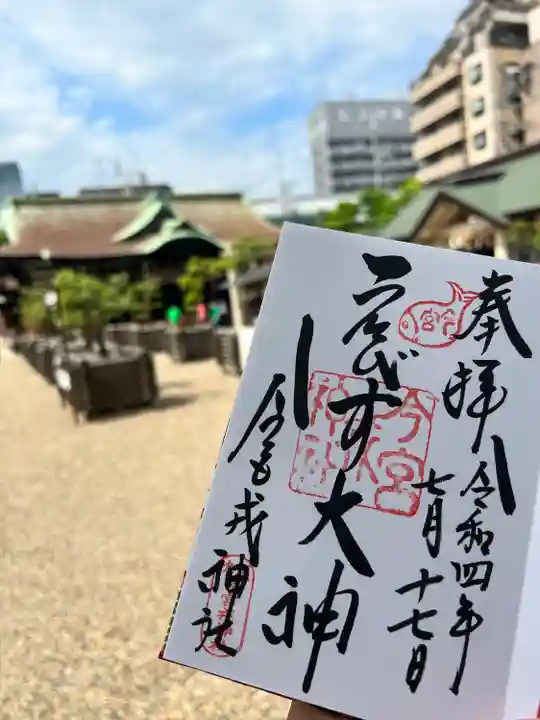 奉拝
令和四年
七月十七日
ゑびす大神
今宮戎神社
今宮戎神社